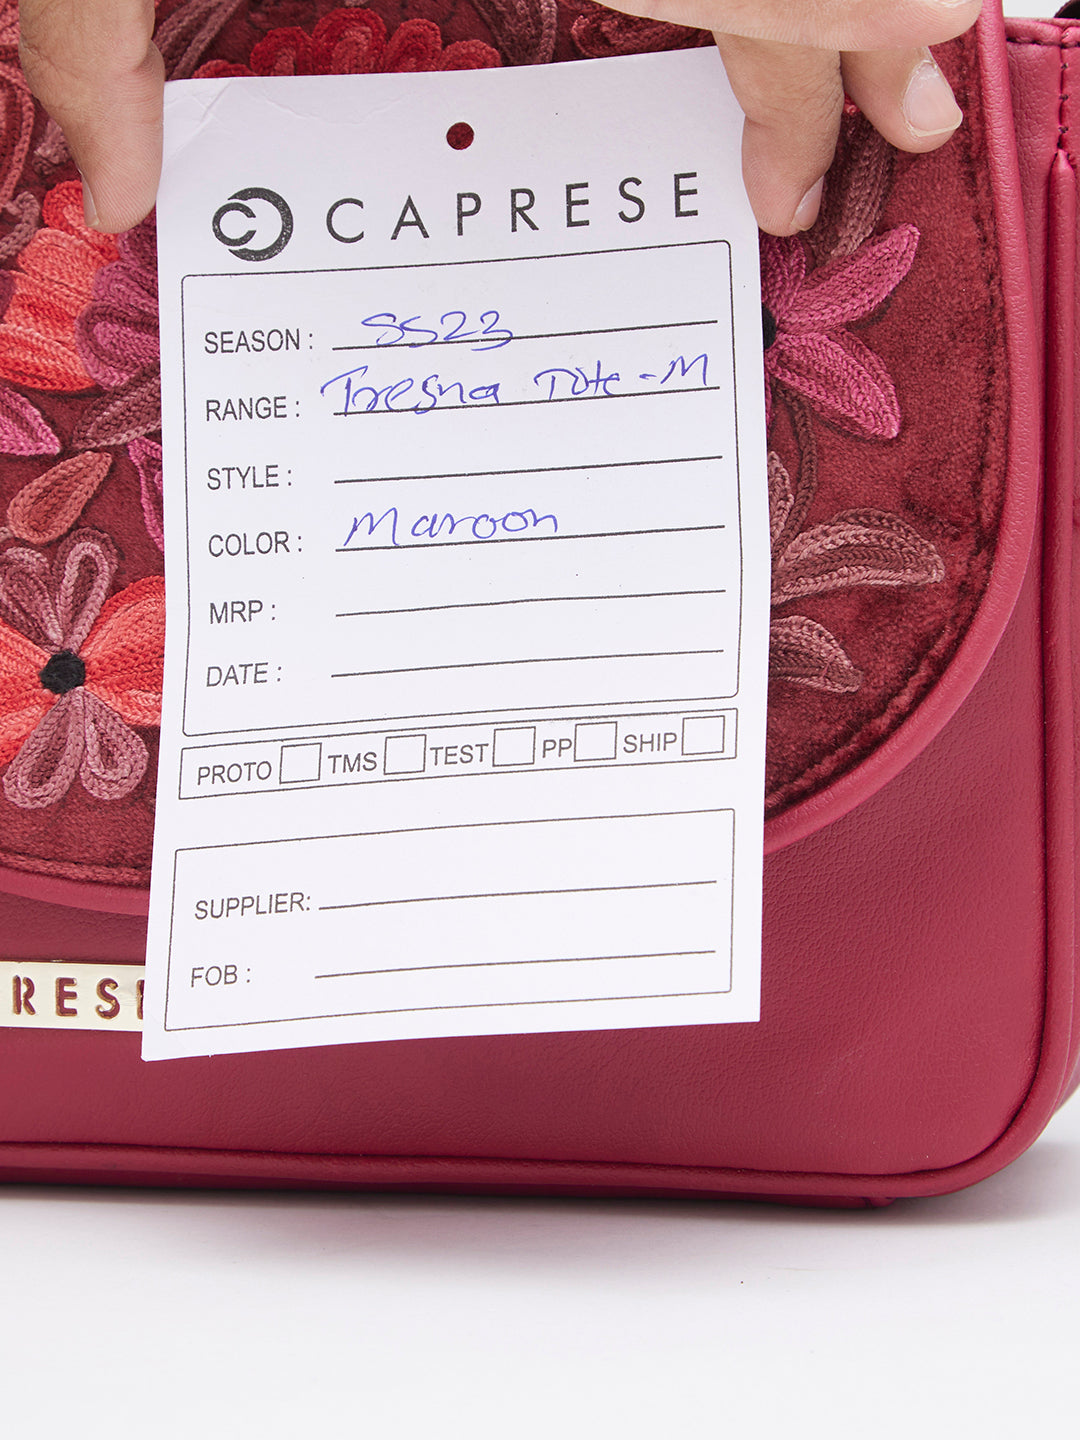 CAPRESE
SEASON : SS23
RANGE : Tresna Tote - M
STYLE :
COLOR : Maroon
MRP :
DATE :
PROTO TMS TEST PP SHIP
SUPPLIER:
FOB :
RES